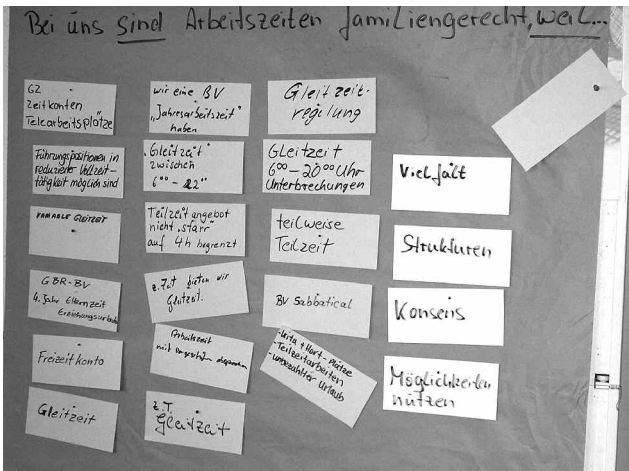 Bei uns sind Arbeitszeiten familiengerecht, weil...
GZ
Zeitkonten
Telearbeitsplätze
Führungspositionen in
reduzierter Vollzeit-
tätigkeit möglich sind
VARIABLE GLEITZEIT
GBR-BV
4. Jahr Elternzeit
Erziehungsurlaub
Freizeitkonto
Gleitzeit
wir eine BV
„Jahresarbeitszeit"
haben
Gleitzeit
zwischen
6°° - 22°°
Teilzeitangebot
nicht „starr"
auf 4h begrenzt
z. Zeit bieten wir
Gleitzeit.
Arbeitszeit
mit
z.T.
Gleitzeit
Gleitzeit-
regilung
GLeitzeit
6°° - 20°° Uhr
Unterbrechungen
teilweise
Teilzeit
BV Sabbatical
- Kita + Hort-Plätze
- Teilzeitarbeiten
- unbezahlter Urlaub
Vielfalt
Strukturen
Konsens
Möglichkeiten
nutzen